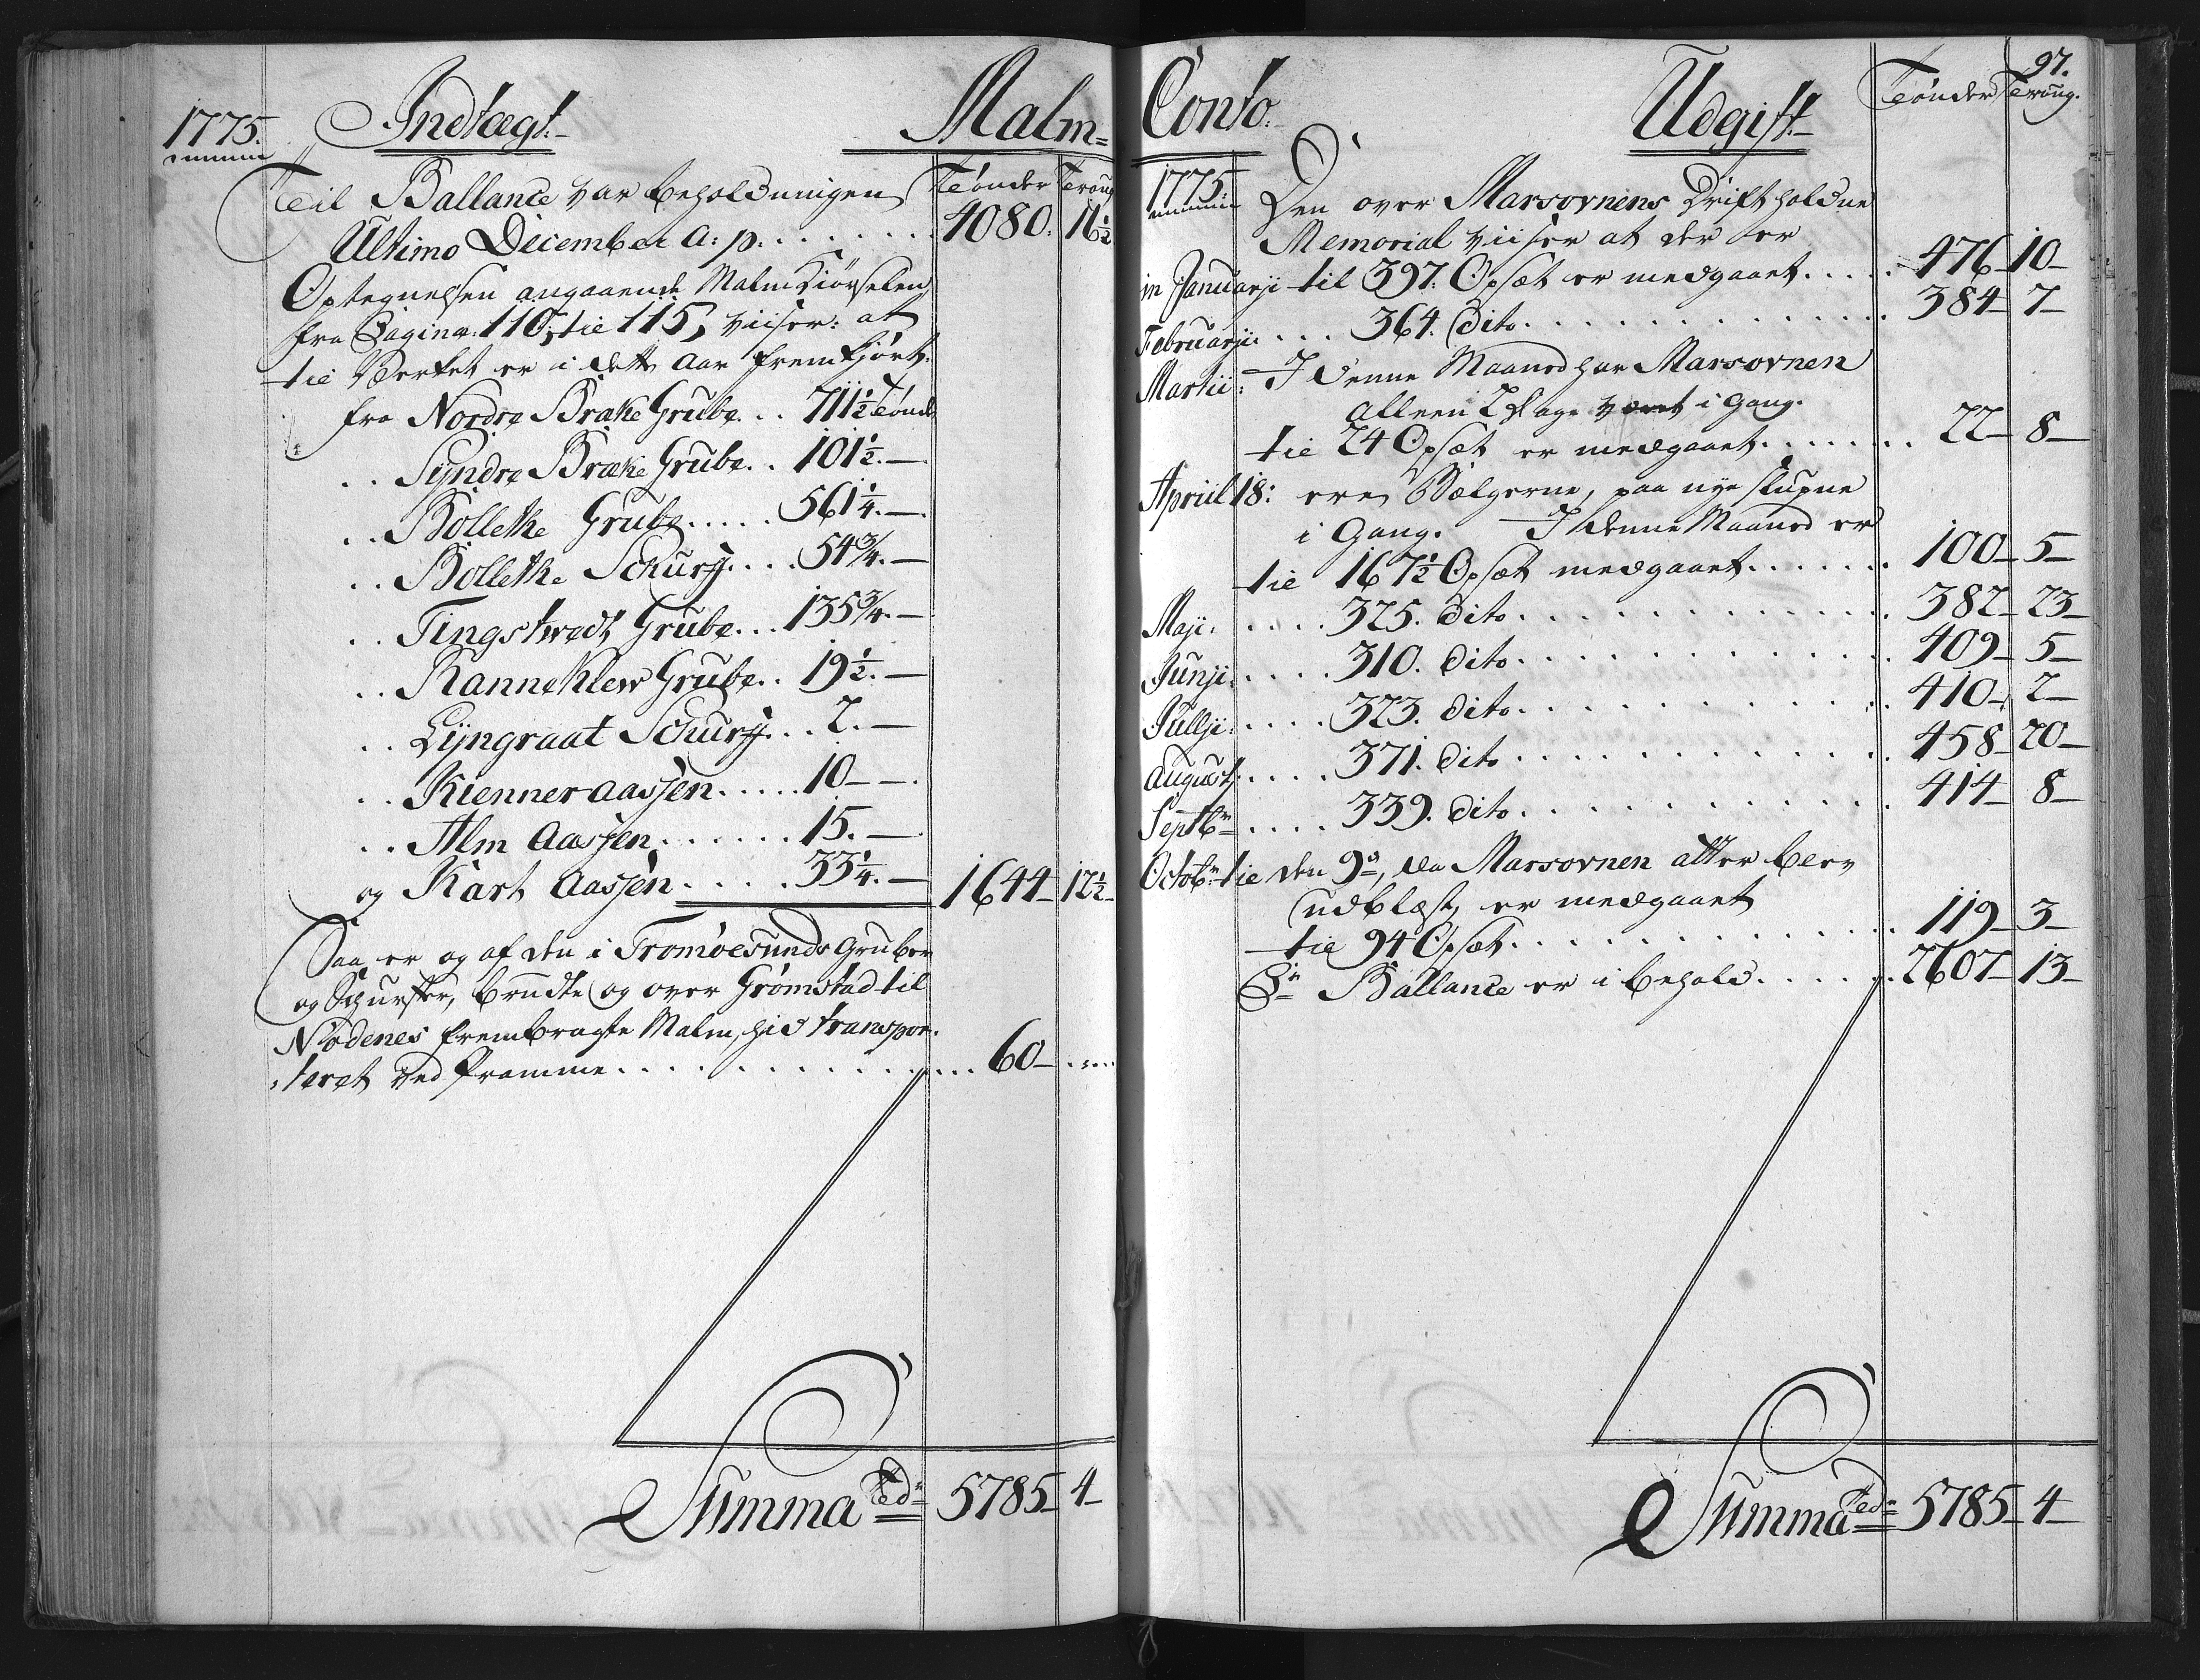 1775. Indtægt. Malm=
Til Ballance var beholdningen Tönder Traug
Ultimo December a: p. 4080. 16½
Optegnelsen angaaende Malm Kiörselen
fra Pagina: 110, til 115, viiser: at
til Værket er i dette Aar fremkjört.
fra Nordre Brake Grube 711½ Tönd
Syndre Brake Grube 101½.
Bolletke Grube 561¼.
Bolletke Schurff 54¾.
Tingstvedt Grube 135¾.
Ranneklew Grube 19½.
Lyngraat Schurff 2.
Kienner aassen 10
Alm aassen 15.
og Kart aassen 33¼. 1644 12½
Saa er og af den i Tromöesunds Gruber
og Schurffer, brudte og over Grömstad til
Nödenes frembragte Malm, hid transpor=
teret ved Pramme 60
Summa Tdr 5785 4
97.
Conto. Udgift Tönder Traug.
1775. Den over Marsovnens Drift holdne
Memorial viiser at der er
in Januarji til 397. Opsæt er medgaaet 476 10
Februarji: 364. Dito 384 7
Martii: I denne Maaned har Marsovnen
alleen 2 Dage været i gang.
til 24 Opsæt er medgaaet 22 8
Apriil 18: ere Bælgerne, paa nye slupne
i Gang. I denne Maaned er
til 167½ Opsæt medgaaet 100 5
Maji. 325. Dito 382 23
Junji. 310. Dito 409 5
Jullji. 323. Dito 410 2
August. 371. Dito 458 20
Septbr 339. Dito 414 8
Octobr til den 9de, da Marsovnen atter blev
udblæst, er medgaaet
til 94 Opsæt 119 3
Pr Ballance er i behold 2607 13
Summa Tdr 5785 4